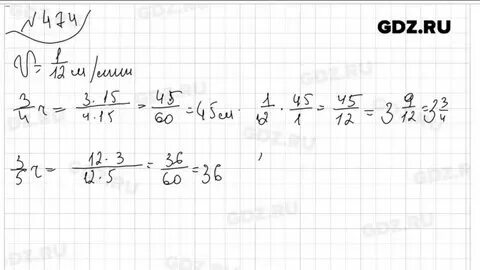 №474
GDZ.RU
V = 1/12 м/мин
3/4 ч = 3·15/4·15 = 45/60 = 45 см. 1/12 · 45/1 = 45/12 = 3 9/12 = 3 3/4
3/5 ч = 12·3/12·5 = 36/60 = 36
GDZ.RU